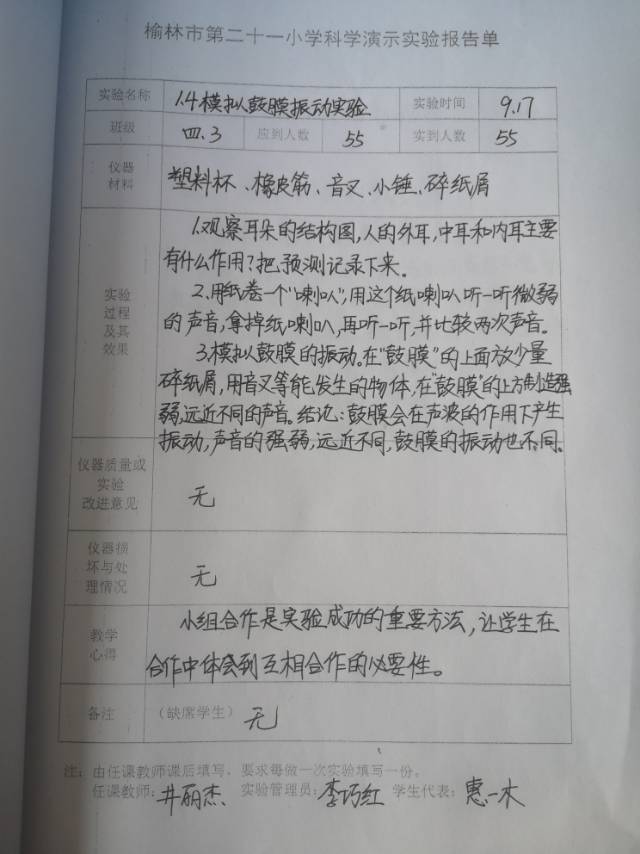 榆林市第二十一小学科学演示实验报告单
实验名称 1.4模拟鼓膜振动实验 实验时间 9.17
班级 四.3 应到人数 55 实到人数 55
仪器
材料
塑料杯、橡皮筋、音叉、小锤、碎纸屑
实验
过程
及其
效果
1.观察耳朵的结构图,人的外耳,中耳和内耳主要
有什么作用?把预测记录下来。
2.用纸卷一个"喇叭",用这个纸喇叭听一听微弱
的声音,拿掉纸喇叭,再听一听,并比较两次声音。
3.模拟鼓膜的振动。在"鼓膜"的上面放少量
碎纸屑,用音叉等能发生的物体,在"鼓膜"的上方制造强
弱,远近不同的声音。结论:鼓膜会在声波的作用下产生
振动,声音的强弱,远近不同,鼓膜的振动也不同。
仪器质量或
实验
改进意见
无
仪器损
坏与处
理情况
无
教学
心得
小组合作是实验成功的重要方法,让学生在
合作中体会到互相合作的必要性。
备注 (缺席学生) 无
注:由任课教师课后填写,要求每做一次实验填写一份。
任课教师:井丽杰 实验管理员:李巧红 学生代表:惠一木